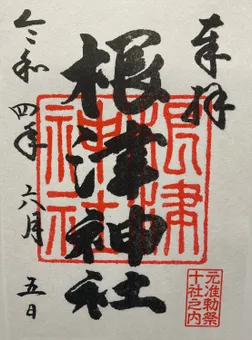 奉拝
根津神社
根津神社
元准勅祭
十社之内
令和四年六月五日